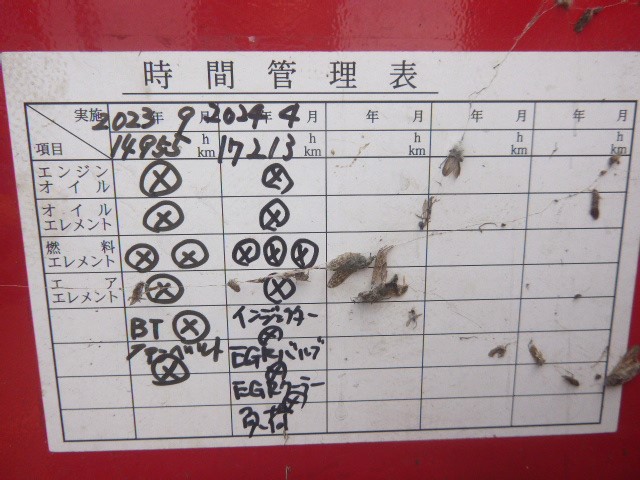 時間管理表
実施 2023年 9月 2024年 4月 年 月 年 月 年 月
項目 14955 h km 17213 h km h km h km h km
エンジンオイル ⓧ ⓧ
オイルエレメント ⓧ ⓧ
燃料エレメント ⓧ ⓧ ⓧ ⓧ ⓧ
エアエレメント ⓧ ⓧ
BT ⓧ インジェクター ⓧ
ファンベルト ⓧ EGRバルブ ⓧ
EGRクーラー ⓧ